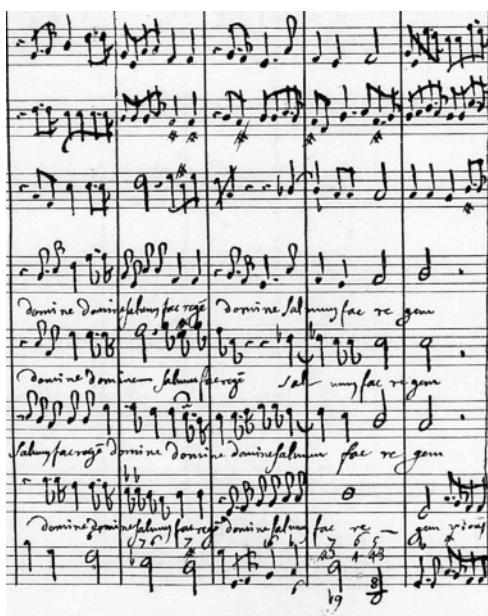 domine domine salvum fac regē domine Salvum fac re gem
domine domine salvum fac regē Sal vum fac re gem
Salvum fac regē domine domine domine salvum fac re gem
domine domine salvum fac regē domine salvum fac re — gem
7 6 7 6 7 6 5
4 3 4 4 3